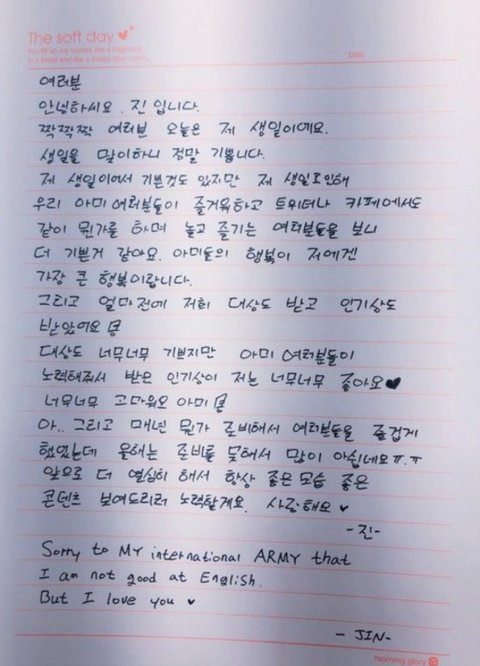 The soft day
Date.
여러분
안녕하세요. 진 입니다.
짝짝짝 여러분 오늘은 제 생일이에요.
생일을 맞이하니 정말 기쁩니다.
제 생일이어서 기쁜것도 있지만 제 생일로인해
우리 아미 여러분들이 즐거워하고 트위터나 카페에서도
같이 뭔가를 하며 놀고 즐기는 여러분들을 보니
더 기쁜거 같아요. 아미들의 행복이 저에겐
가장 큰 행복이랍니다.
그리고 얼마전에 저희 대상도 받고 인기상도
받았어요
대상도 너무너무 기쁘지만 아미 여러분들이
노력해줘서 받은 인기상이 저는 너무너무 좋아요♥
너무너무 고마워요 아미
아.. 그리고 매년 뭔가 준비해서 여러분들을 즐겁게
했었는데 올해는 준비를 못해서 많이 아쉽네요ㅠ.ㅠ
앞으로 더 열심히 해서 항상 좋은 모습 좋은
콘텐츠 보여드리려 노력할게요. 사랑해요 ♥
-진-
Sorry to MY international ARMY that
I am not good at English.
But I love you ♥
- JIN -
morning glory